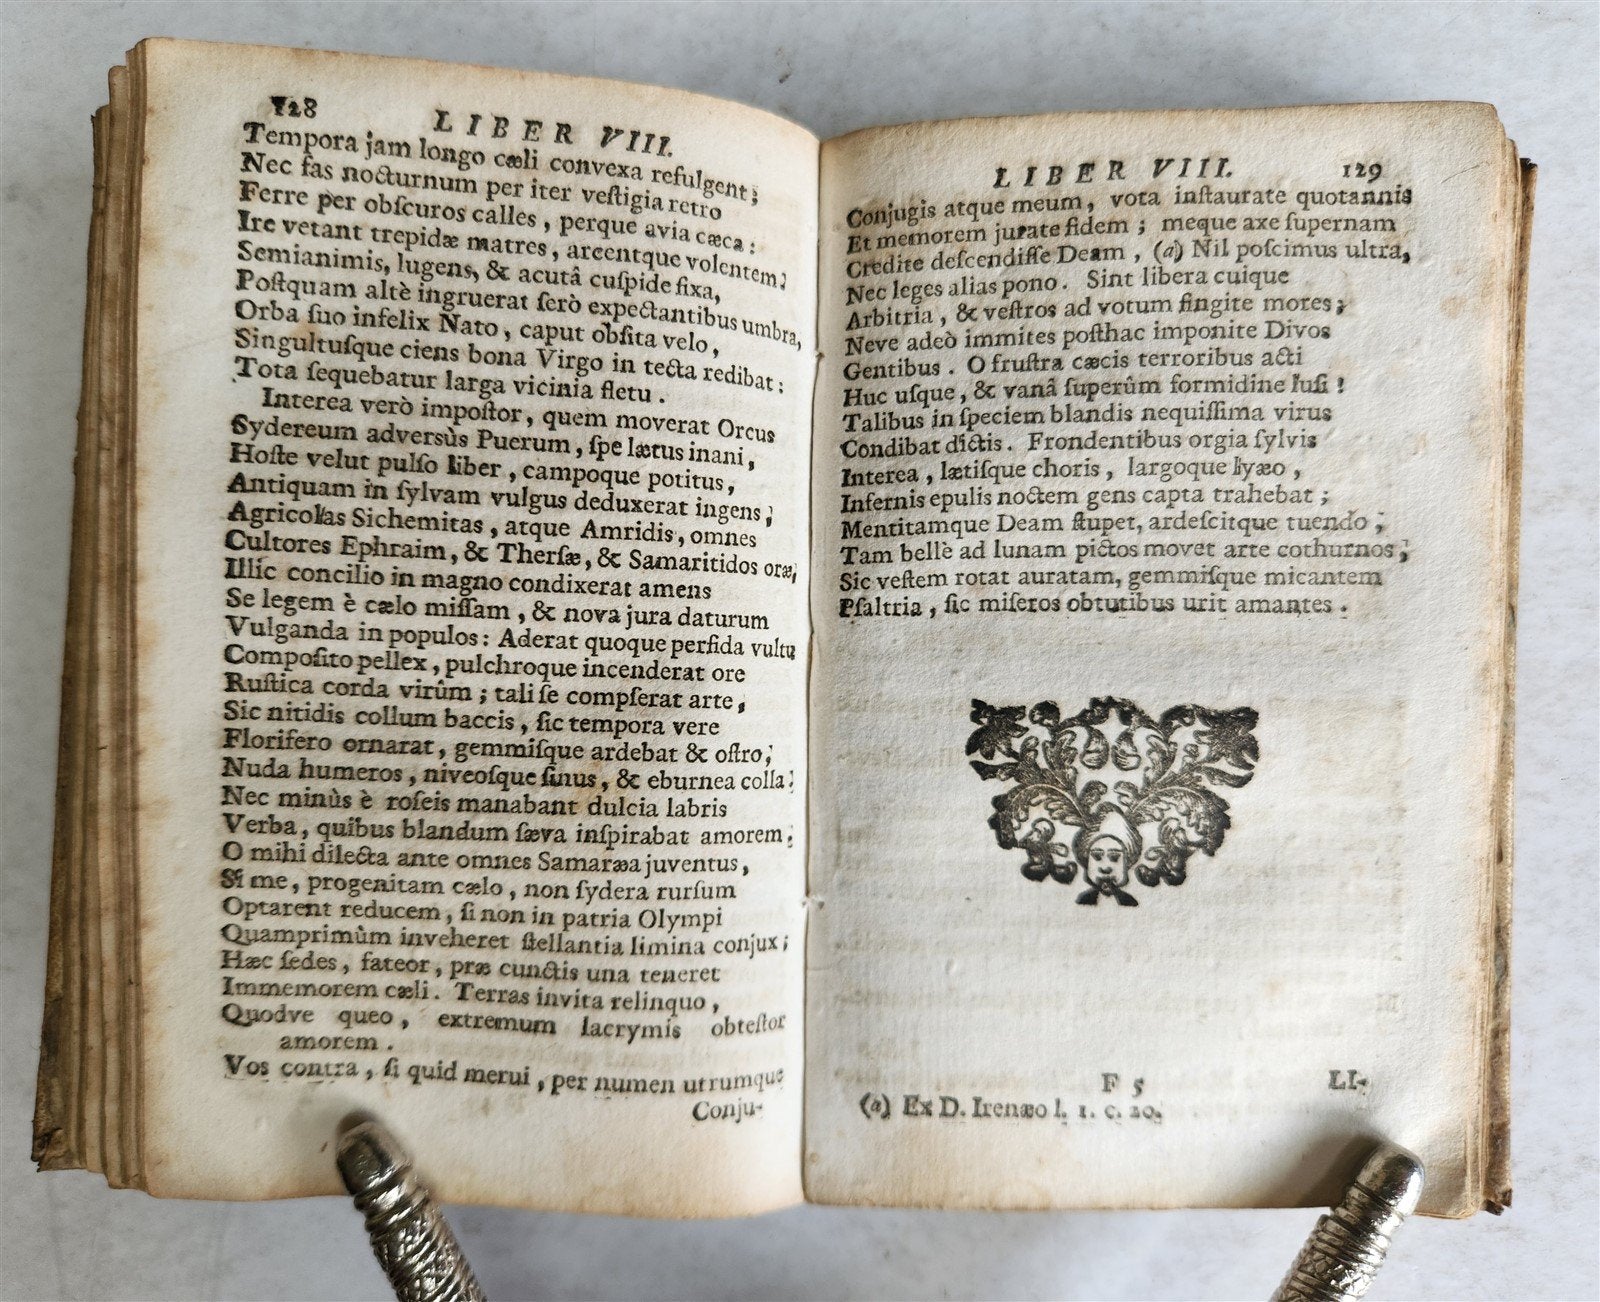 128
LIBER VIII.
Tempora jam longo cæli convexa refulgent;
Nec fas nocturnum per iter veſtigia retro
Ferre per obſcuros calles, perque avia cæca:
Ire vetant trepidæ matres, arcentque volentem;
Semianimis, lugens, & acutâ cuſpide fixa,
Poſtquam altè ingruerat ſerò expectantibus umbra,
Orba ſuo infelix Nato, caput obſita velo,
Singultuſque ciens bona Virgo in tecta redibat:
Tota ſequebatur larga vicinia fletu.
Interea verò impoſtor, quem moverat Orcus
Sydereum adversùs Puerum, ſpe lætus inani,
Hoſte velut pulſo liber, campoque potitus,
Antiquam in ſylvam vulgus deduxerat ingens;
Agricolas Sichemitas, atque Amridis, omnes
Cultores Ephraim, & Therſæ, & Samaritidos oræ;
Illic concilio in magno condixerat amens
Se legem è cælo miſſam, & nova jura daturum
Vulganda in populos: Aderat quoque perfida vultu
Compoſito pellex, pulchroque incenderat ore
Ruſtica corda virûm; tali ſe compſerat arte,
Sic nitidis collum baccis, ſic tempora vere
Florifero ornarat, gemmiſque ardebat & oſtro;
Nuda humeros, niveoſque ſinus, & eburnea colla;
Nec minùs è roſeis manabant dulcia labris
Verba, quibus blandum ſæva inſpirabat amorem:
O mihi dilecta ante omnes Samaræa juventus,
Si me, progenitam cælo, non ſydera rurſum
Optarent reducem, ſi non in patria Olympi
Quamprimùm inveheret ſtellantia limina conjux;
Hæc ſedes, fateor, præ cunctis una teneret
Immemorem cæli. Terras invita relinquo,
Quodve queo, extremum lacrymis obteſtor
amorem.
Vos contra, ſi quid merui, per numen utrumque
Conju-
LIBER VIII.
129
Conjugis atque meum, vota inſtaurate quotannis
Et memorem jurate fidem; meque axe ſupernam
Credite deſcendiſſe Deam, (a) Nil poſcimus ultra,
Nec leges alias pono. Sint libera cuique
Arbitria, & veſtros ad votum fingite mores;
Neve adeò immites poſthac imponite Divos
Gentibus. O fruſtra cæcis terroribus acti
Huc uſque, & vanâ ſuperûm formidine luſi!
Talibus in ſpeciem blandis nequiſſima virus
Condibat dictis. Frondentibus orgia ſylvis
Interea, lætiſque choris, largoque lyæo,
Infernis epulis noctem gens capta trahebat;
Mentitamque Deam ſtupet, ardeſcitque tuendo;
Tam bellè ad lunam pictos movet arte cothurnos;
Sic veſtem rotat auratam, gemmiſque micantem
Pſaltria, ſic miſeros obtutibus urit amantes.
F 5
LI-
(a) Ex D. Irenæo l. 1. c. 20.